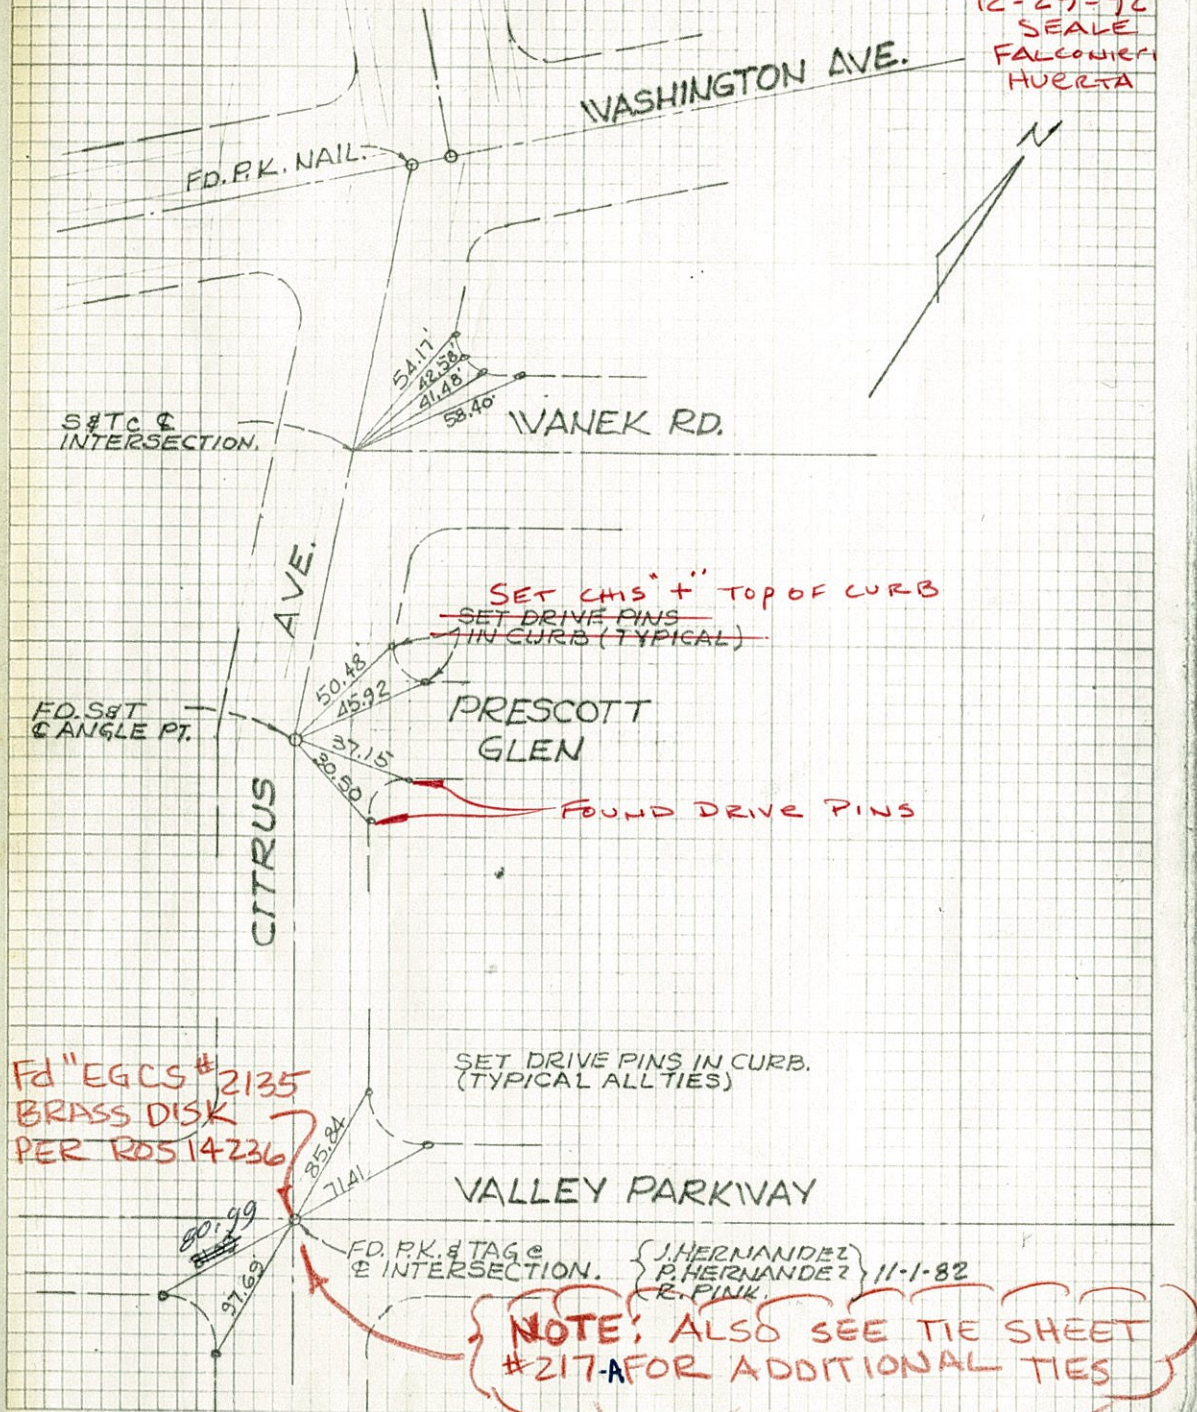 SEALE
FALCONIERI
HUERTA
WASHINGTON AVE.
FD. P.K. NAIL.
N
54.17'
42.58'
41.48'
58.40'
S&T @ ℄
INTERSECTION.
WANEK RD.
AVE.
SET CHIS "+" TOP OF CURB
SET DRIVE PINS
IN CURB (TYPICAL)
50.48'
45.92
PRESCOTT
GLEN
FD. S&T
℄ ANGLE PT.
37.15
30.50
FOUND DRIVE PINS
CITRUS
SET DRIVE PINS IN CURB.
(TYPICAL ALL TIES)
Fd "EGCS #2135
BRASS DISK
PER ROS 14236
85.84
71.41
VALLEY PARKWAY
80.99
97.69'
FD. P.K. & TAG @
℄ INTERSECTION.
J. HERNANDEZ
P. HERNANDEZ 11-1-82
R. PINK.
NOTE: ALSO SEE TIE SHEET
#217-A FOR ADDITIONAL TIES